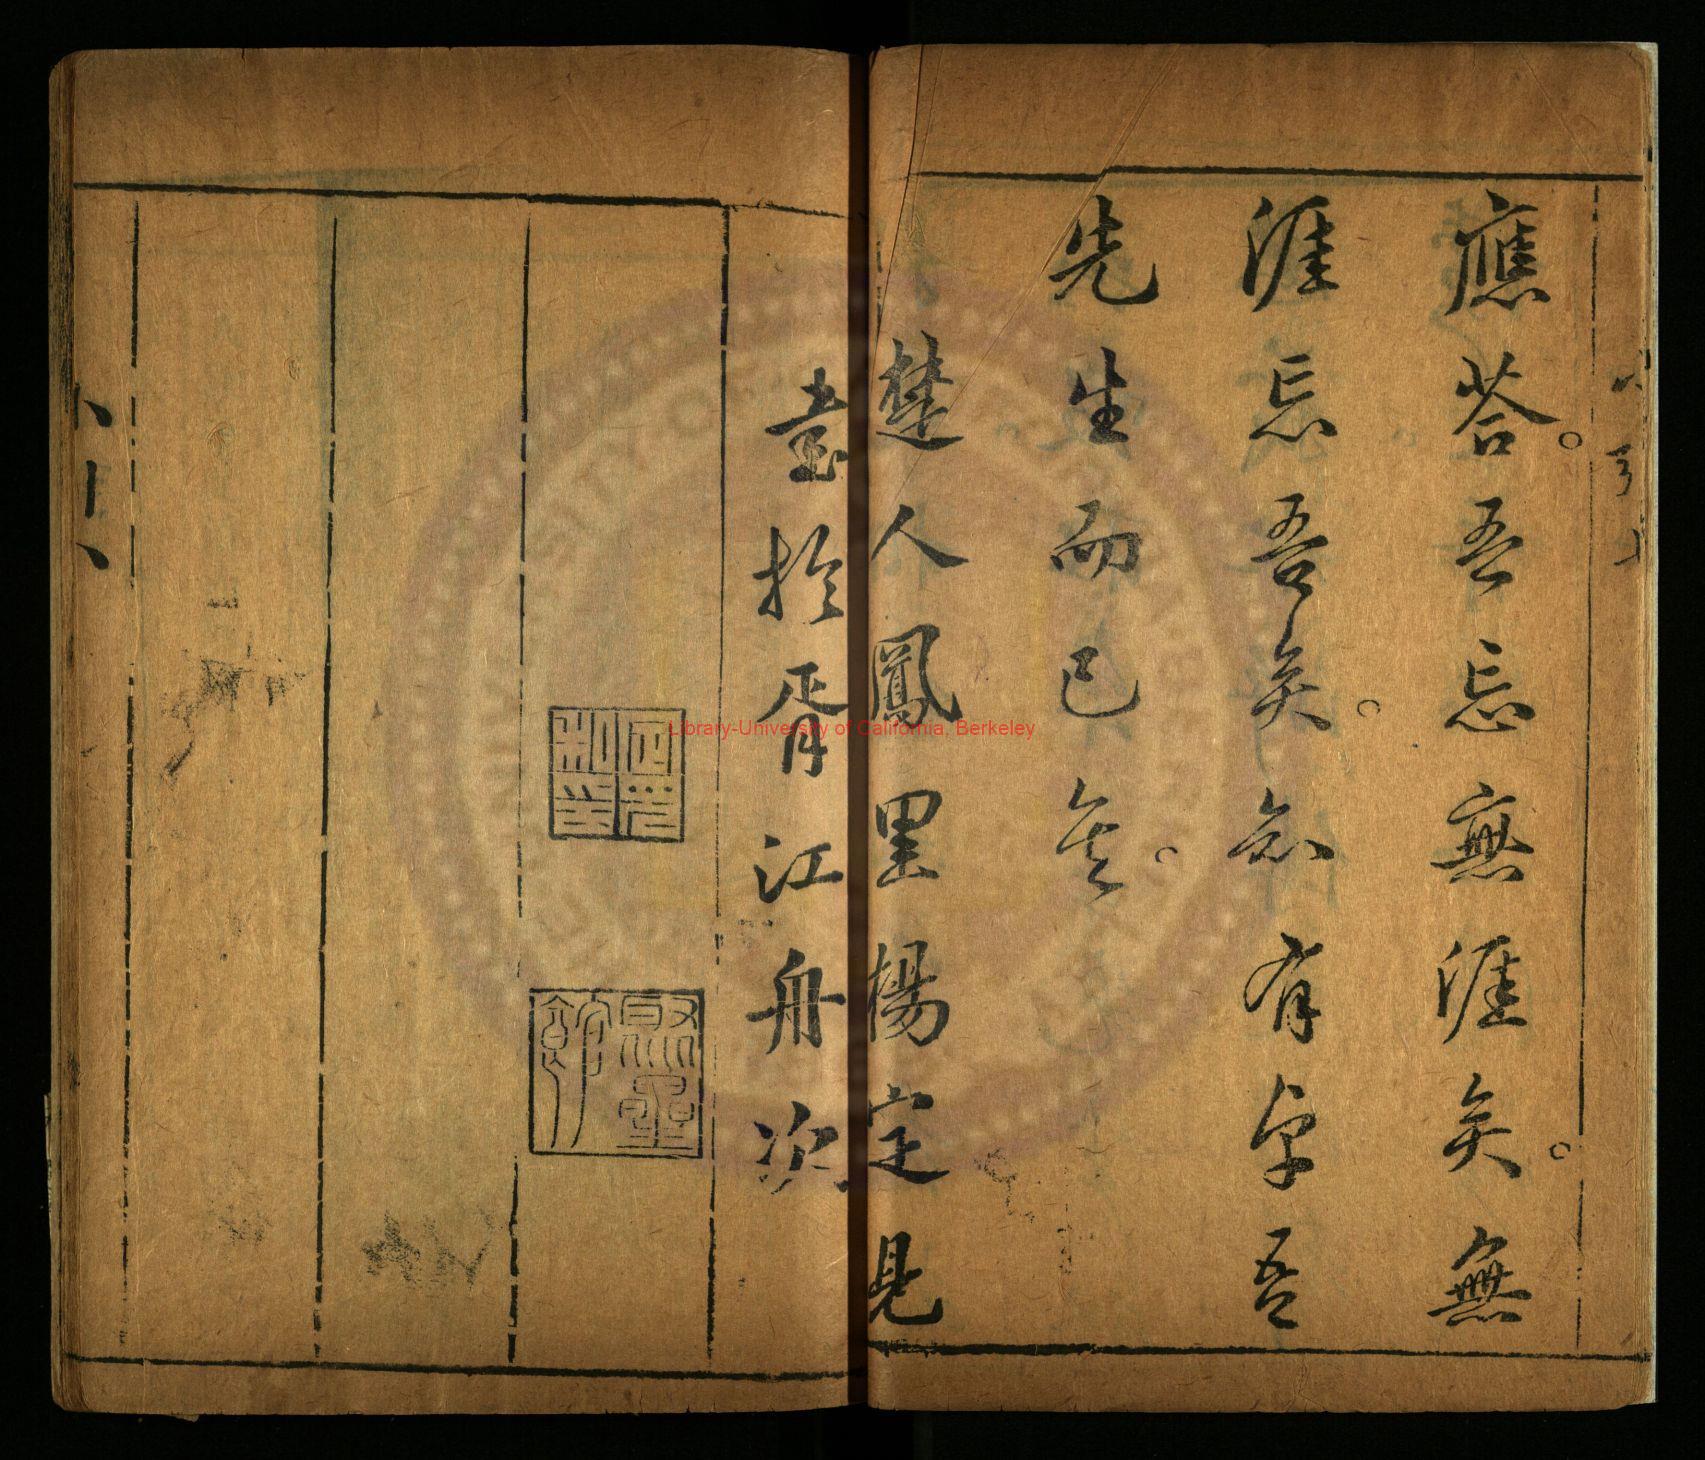 應荅。吾忘無涯矣。無
涯忘吾矣。知有卓吾
先生而已矣。
楚人鳳里楊定見
書於胥江舟次
Library-University of California, Berkeley